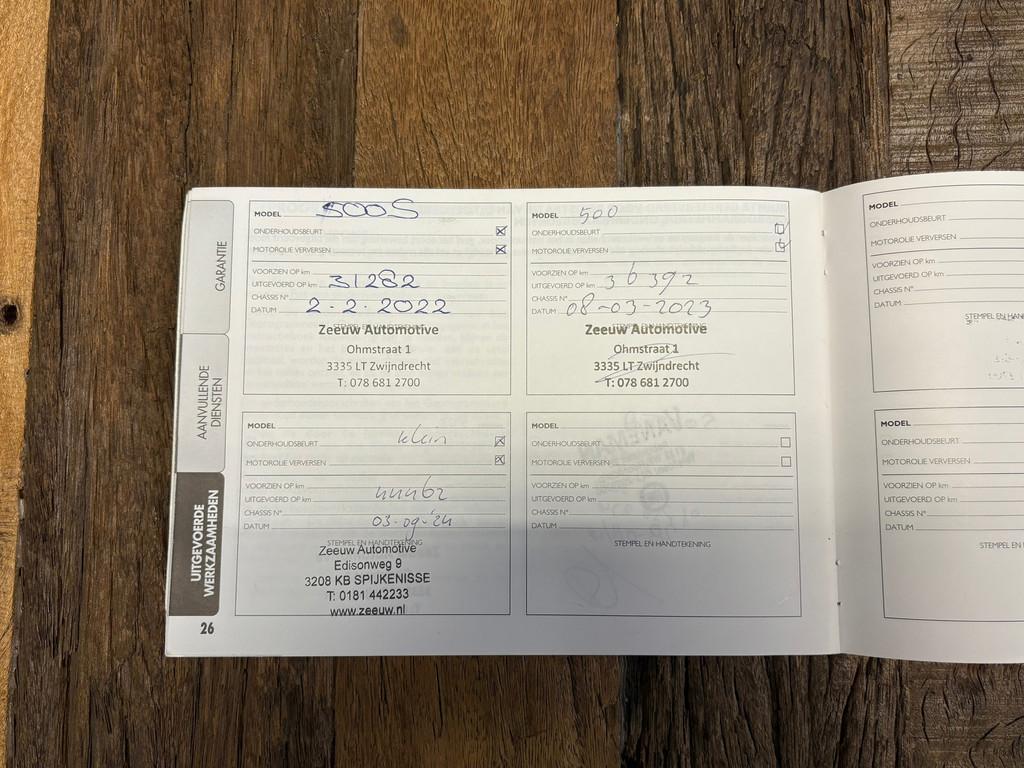 GARANTIE
AANVULLENDE
DIENSTEN
UITGEVOERDE
WERKZAAMHEDEN
26
MODEL 500S
ONDERHOUDSBEURT
MOTOROLIE VERVERSEN
VOORZIEN OP km
UITGEVOERD OP km 31282
CHASSIS N°
DATUM 2-2-2022
STEMPEL EN HANDTEKENING
Zeeuw Automotive
Ohmstraat 1
3335 LT Zwijndrecht
T: 078 681 2700
MODEL 500
ONDERHOUDSBEURT
MOTOROLIE VERVERSEN
VOORZIEN OP km
UITGEVOERD OP km 36392
CHASSIS N°
DATUM 08-03-2023
STEMPEL EN HANDTEKENING
Zeeuw Automotive
Ohmstraat 1
3335 LT Zwijndrecht
T: 078 681 2700
MODEL
ONDERHOUDSBEURT klein
MOTOROLIE VERVERSEN
VOORZIEN OP km
UITGEVOERD OP km 44462
CHASSIS N°
DATUM 03-09-'24
STEMPEL EN HANDTEKENING
Zeeuw Automotive
Edisonweg 9
3208 KB SPIJKENISSE
T: 0181 442233
www.zeeuw.nl
MODEL
ONDERHOUDSBEURT
MOTOROLIE VERVERSEN
VOORZIEN OP km
UITGEVOERD OP km
CHASSIS N°
DATUM
STEMPEL EN HANDTEKENING
MODEL
ONDERHOUDSBEURT
MOTOROLIE VERVERSEN
VOORZIEN OP km
UITGEVOERD OP km
CHASSIS N°
DATUM
STEMPEL EN
MODEL
ONDERHOUDSBEURT
MOTOROLIE VERVERSEN
VOORZIEN OP km
UITGEVOERD OP km
CHASSIS N°
DATUM
STEMPEL EN